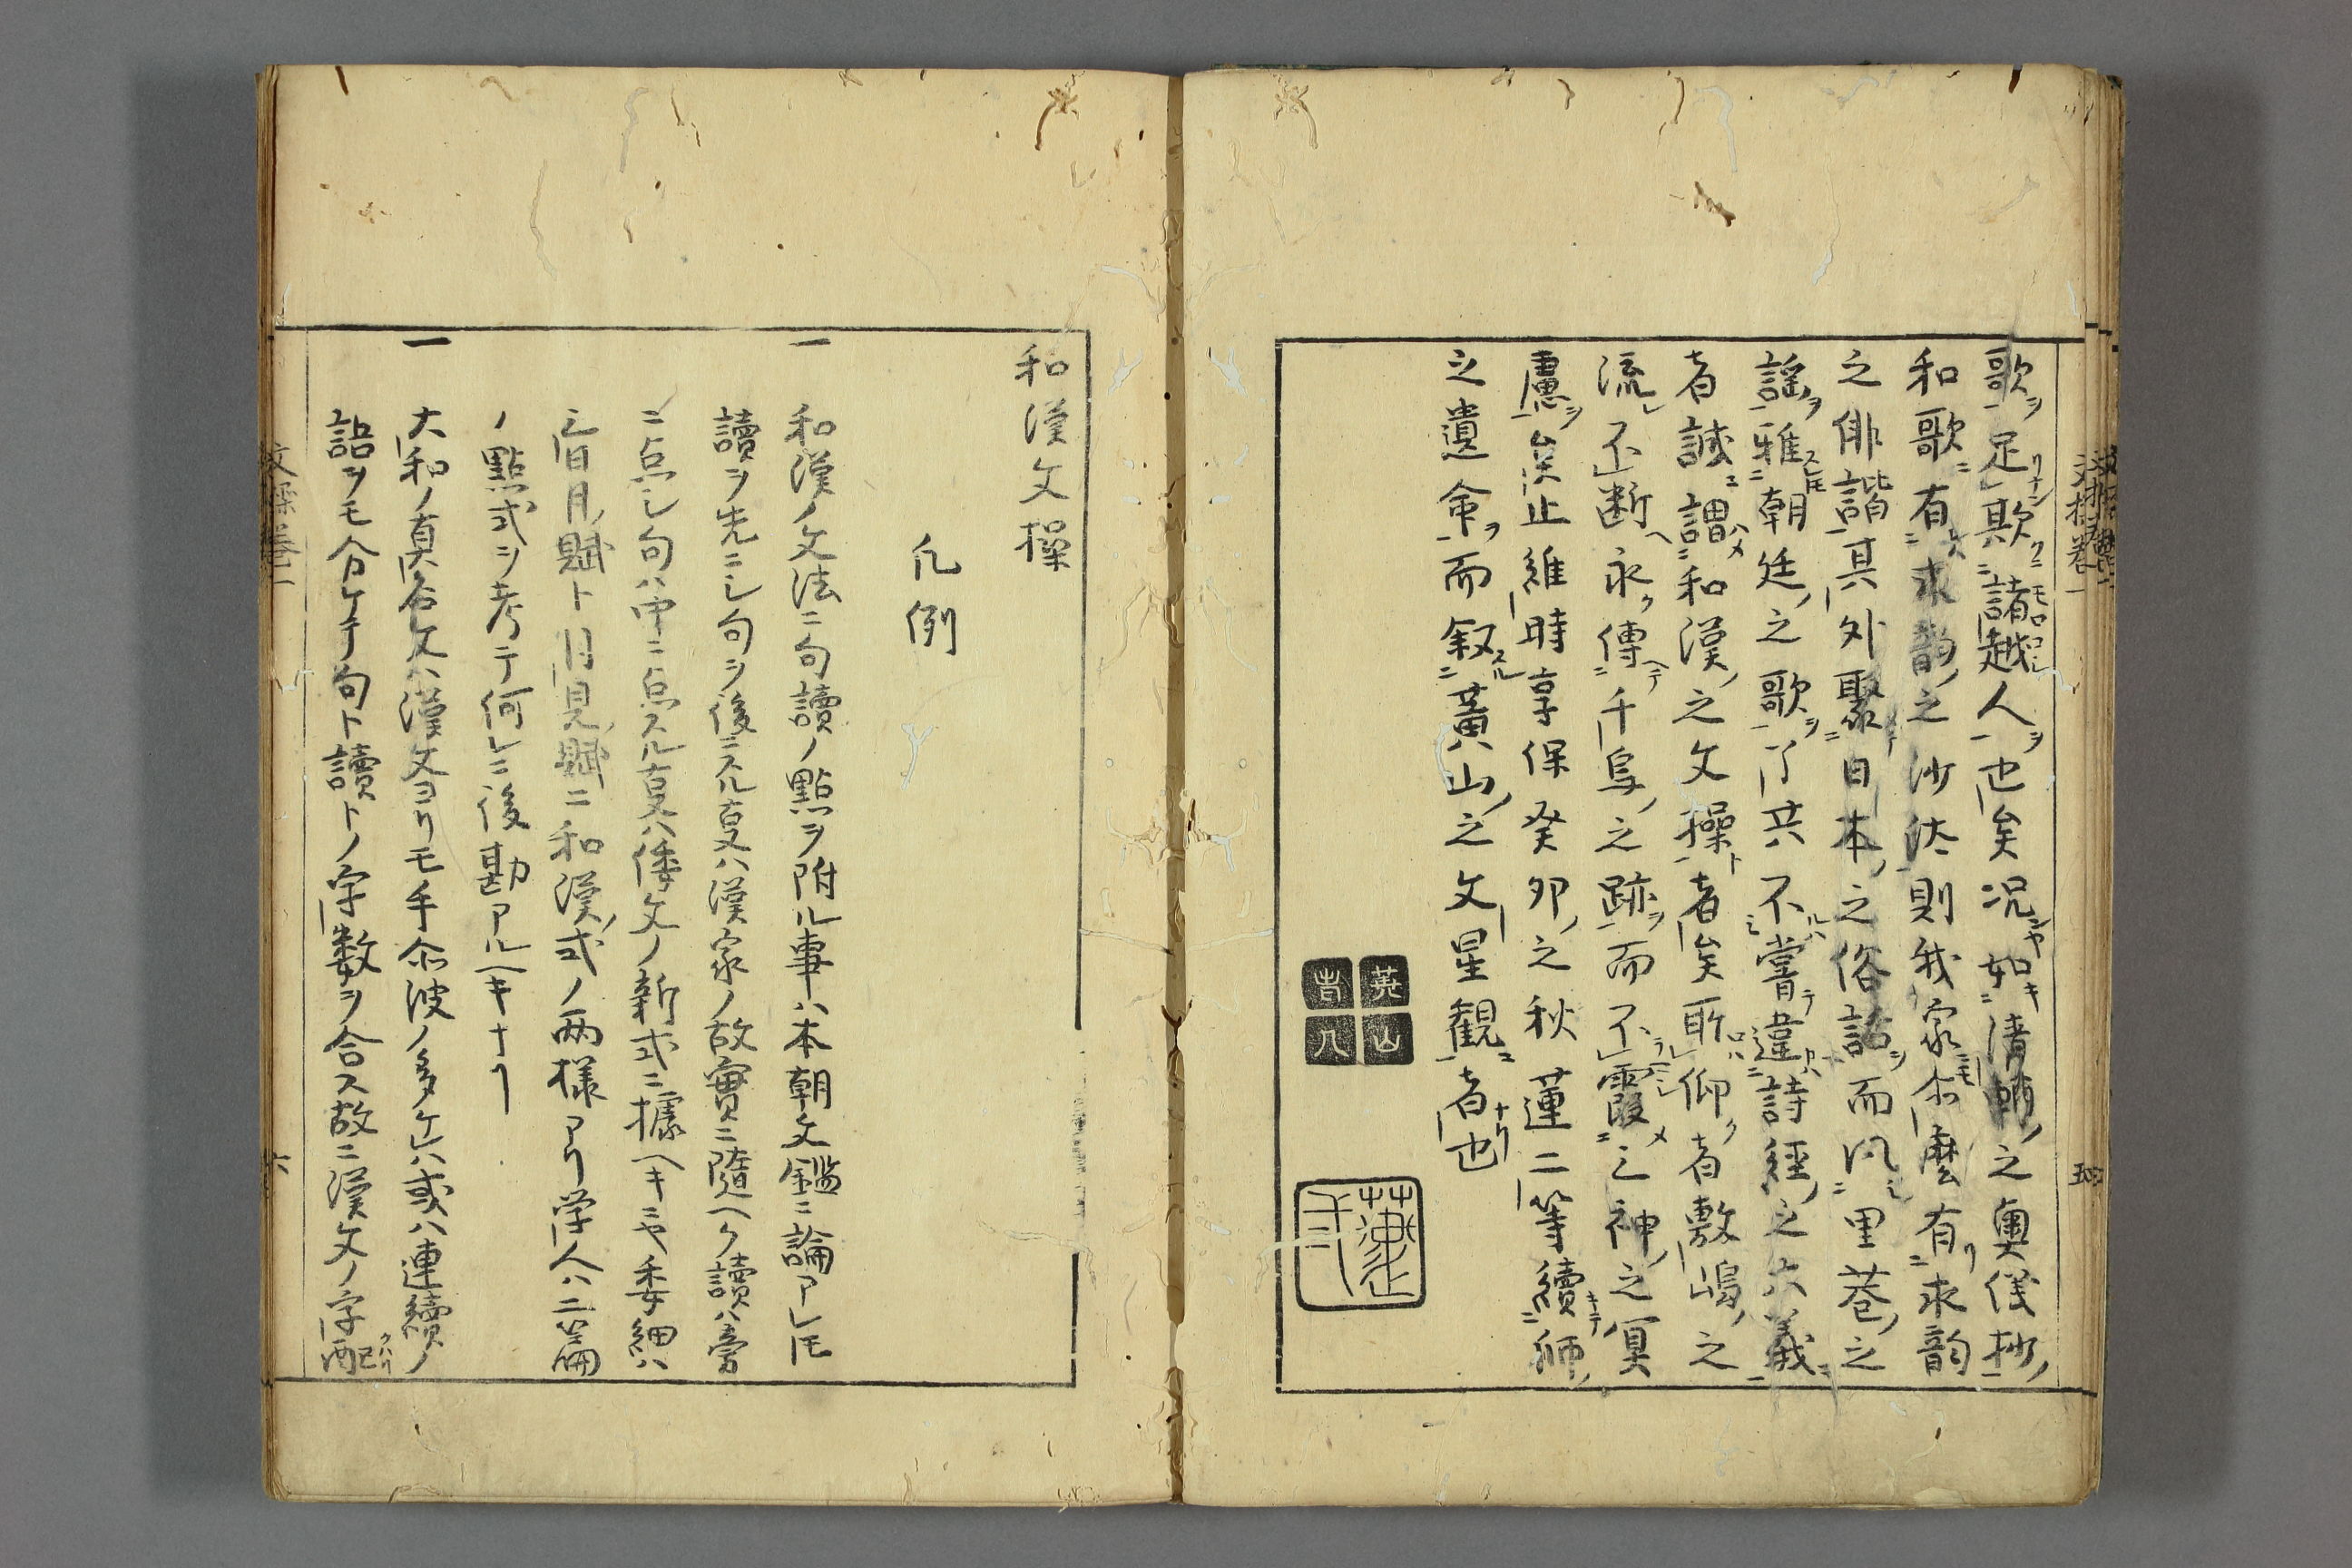 歌足欺諸越人也矣况如清輔之奥儀抄
和歌有求韵之沙汰則我家尒麼有求韵
之俳諧其外聚日本之俗話而汎里巷之
謡雅朝廷之歌了共不嘗違詩經之六義
者誠謂和漢之文操者矣所仰者敷嶋之
流不断永傳千鳥之跡而不霞之神之冥
慮矣止維時享保癸卯之秋蓮二等續師
之遺命而叙黄山之文星観者也
和漢文操
凡例
一 和漢ノ文法ニ句讀ノ點ヲ附ル事ハ本朝文鑑ニ論アレ𪜈
讀ヲ先ニシ句ヲ後ニスル㕝ハ漢家ノ故實ニ隨ヘク讀ハ旁
ニ点シ句ハ中ニ点スル㕝ハ倭文ノ新式ニ據ヘキニヤ委細ハ
百月賦ト月見賦ニ和漢式ノ両様アリ学人ハ二篇
ノ點式ヲ考テ何レニ後勘アルヘキナリ
一 大和ノ真名文ハ漢文ヨリモ手尓波ノ多ケレハ或ハ連續ノ
語ヲモ合ケテ句ト讀トノ字数ヲ合ス故ニ漢文ノ字配
文操巻一
六